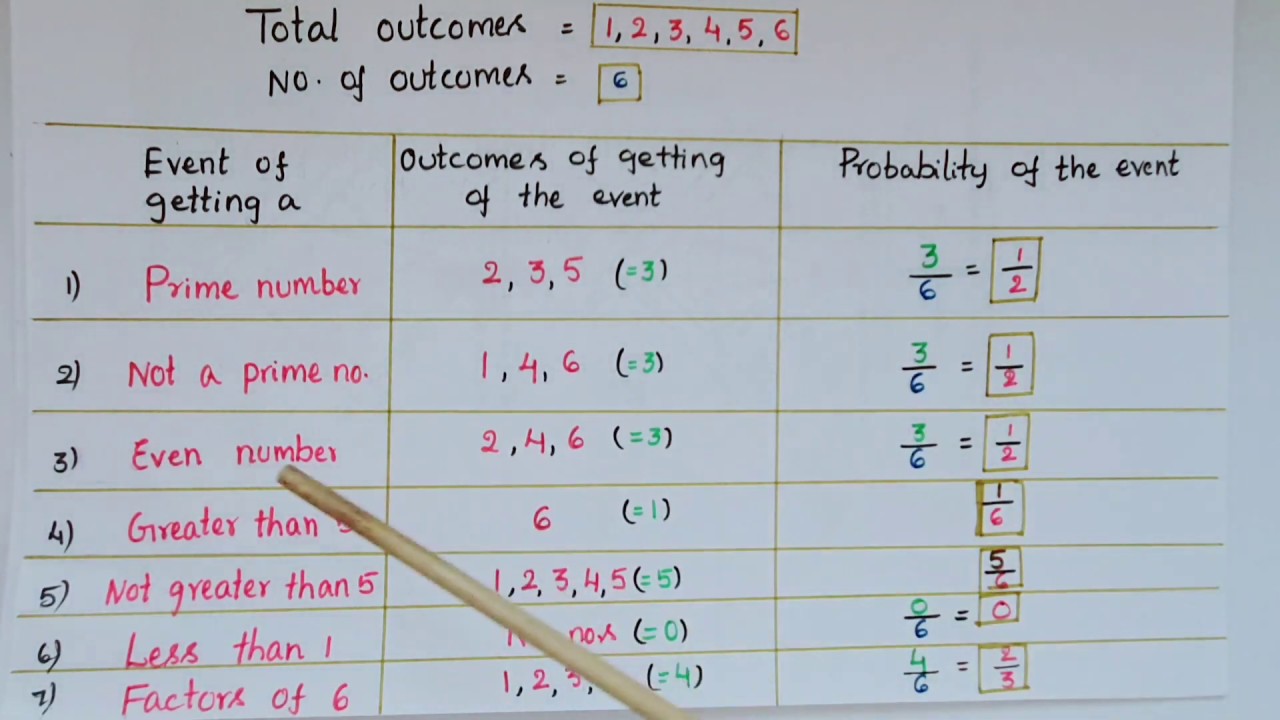 Total outcomes = 1, 2, 3, 4, 5, 6
No. of outcomes = 6
Event of getting a
Outcomes of getting of the event
Probability of the event
1) Prime number 2, 3, 5 (=3) 3/6 = 1/2
2) Not a prime no. 1, 4, 6 (=3) 3/6 = 1/2
3) Even number 2, 4, 6 (=3) 3/6 = 1/2
4) Greater than 6 (=1) 1/6
5) Not greater than 5 1, 2, 3, 4, 5 (=5) 5/6
6) Less than 1 nos (=0) 0/6 = 0
7) Factors of 6 1, 2, 3, (=4) 4/6 = 2/3